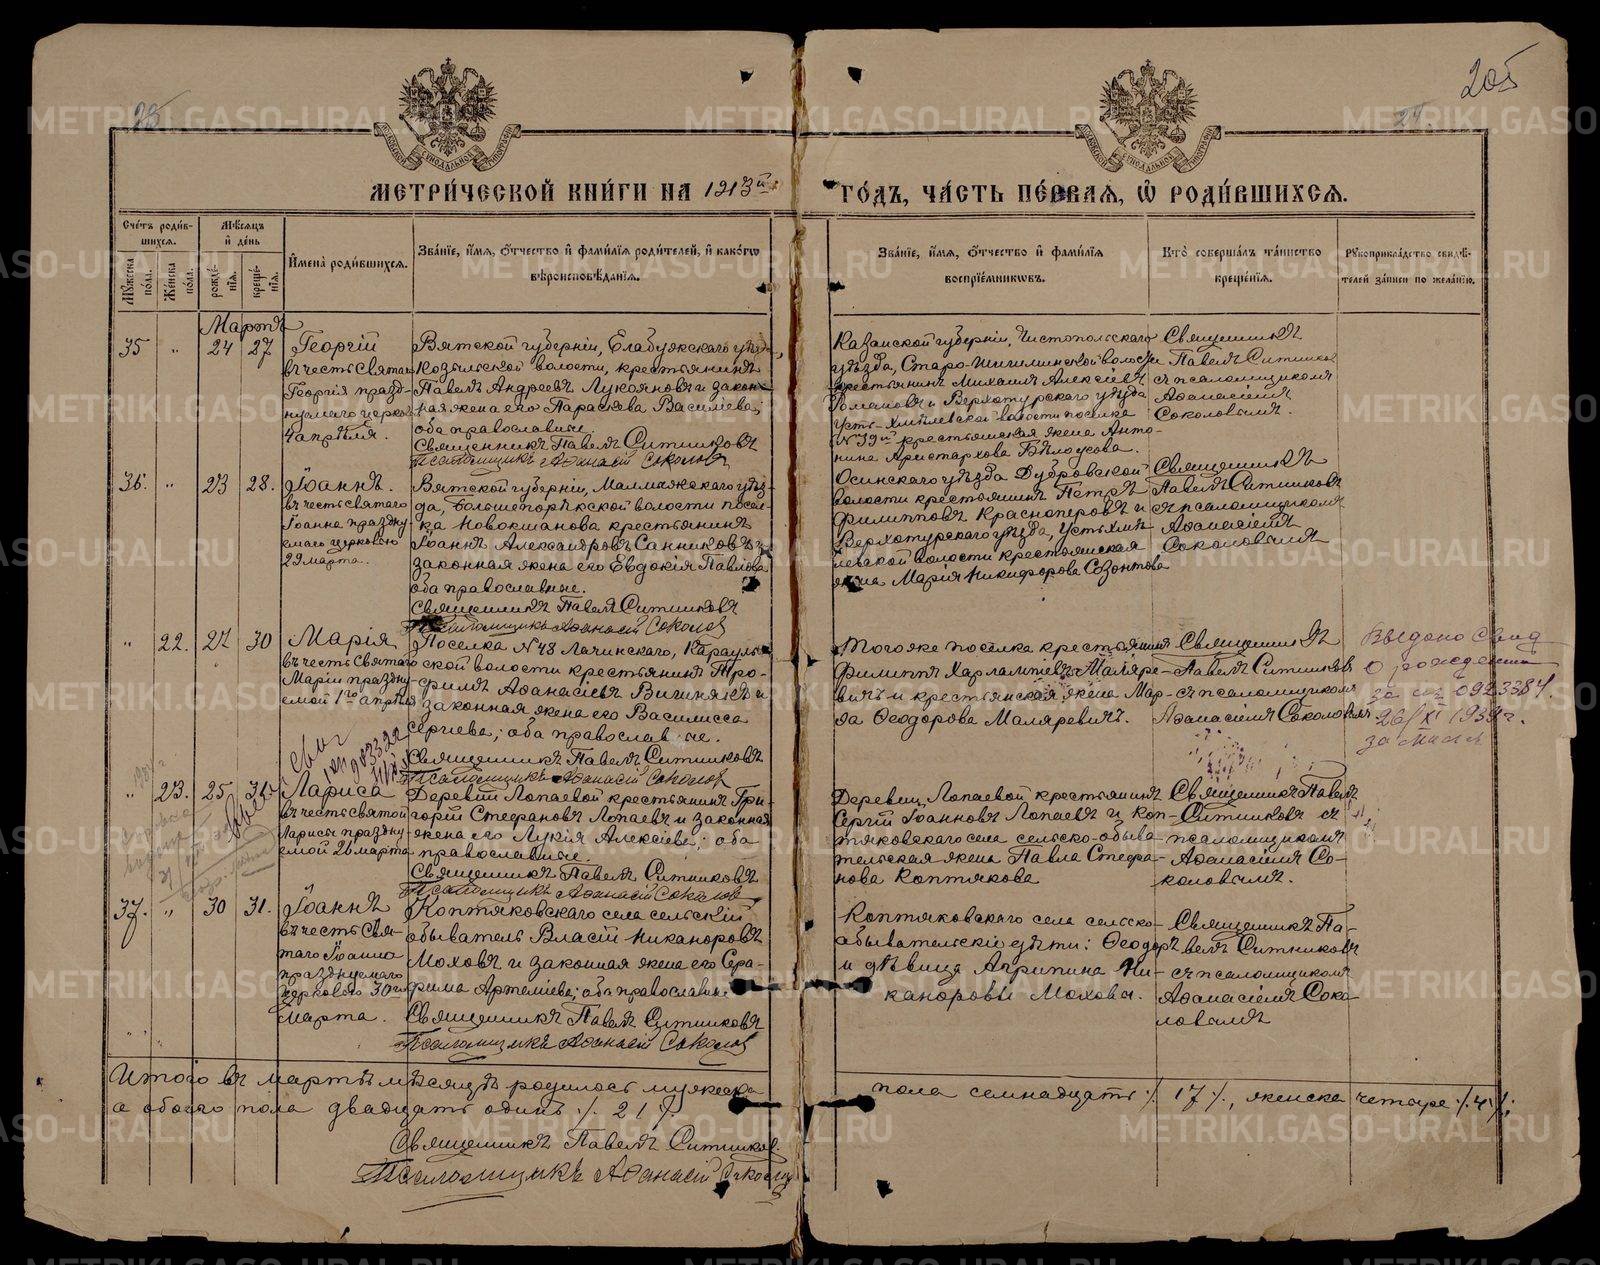 205
25
24
МЕТРИ́ЧЕСКОЙ КНИ́ГИ НА 1913й ГО́ДЪ, ЧА́СТЬ ПЕ́РВАѦ, Ѡ҆ РОДИ́ВШИХСѦ.
Сче́тъ роди́в-
шихсѧ.
Мѣ́сѧцъ
и҆ де́нь
Мꙋ́жеска по́ла.
Же́нска по́ла.
рожде́-
нїѧ.
креще́-
нїѧ.
И҆мена̀ роди́вшихсѧ.
Зва́нїе, и҆́мѧ, ѻ҆́тчество и҆ фами́лїѧ роди́телей, и҆ како́гѡ
вѣроисповѣ́данїѧ.
Зва́нїе, и҆́мѧ, ѻ҆́тчество и҆ фами́лїѧ
воспрїе́мникѡвъ.
Кто̀ соверша́лъ та́инство
креще́нїѧ.
Рꙋкоприкла́дство свидѣ́-
телей за́писи по жела́нїю.
Марта
35 " 24 27
Георгій
въ честь Святаго
Георгія празд-
нуемаго церков.
4 апрѣля.
Вятской губерніи, Елабужскаго уѣзда,
Козыльской волости, крестьянинъ
Павелъ Андреевъ Лукояновъ и закон-
ная жена его Параскева Василіева;
оба православные.
Священникъ Павелъ Ситниковъ
Псаломщикъ Афанасій Соколовъ
Казанской губерніи, Чистопольскаго
уѣзда, Старо-
крестьянинъ Михаилъ Алексіевъ
Романовъ и Верхотурскаго уѣзда
Усть-Хмѣлевской волости поселка
№39й крестьянская жена Анто-
нина Аристархова Бѣлоусова.
Священникъ
Павелъ Ситников
съ псаломщикомъ
Афанасіемъ
Соколовымъ.
36. " 23 28.
Іоаннъ.
въ честь святаго
Іоанна праздну-
емаго церковію
29 марта.
Вятской губерніи, Малмыжскаго уѣз-
да, Большепорѣкской волости посел-
ка Новокшанова крестьянинъ
Іоаннъ Александровъ Санниковъ и
законная жена его Евдокія Павлова
оба православные.
Священникъ Павелъ Ситниковъ
Псаломщикъ Афанасій Соколов
Осинскаго уѣзда Дубровской
волости крестьянинъ Петръ
Филипповъ Красноперовъ и
Верхотурскаго уѣзда, Устьхмѣ-
левской волости крестьянская
жена Марія Никифорова Созонтова
Священникъ
Павелъ Ситниковъ
съ псаломщикомъ
Афанасіемъ
Соколовымъ
" 22. 27 30
Марія
въ честь Святаго
Маріи праздну-
емой 1го апрѣля
Поселка №48 Лачинскаго, Карауль-
ской волости крестьянинъ Тро-
фимъ Афанасіевъ Вишнякъ и
законная жена его Василисса
Сергіева; оба православные.
Священникъ Павелъ Ситниковъ
Псаломщикъ Афанасій Соколов
Тогоже поселка крестьянинъ
Филиппъ Харлампіевъ Маляре-
вичъ и крестьянская жена Мар-
ѳа Ѳеодорова Маляревичъ.
Священникъ
Павелъ Ситников
съ псаломщикомъ
Афанасіемъ Соколовымъ
Выдано свид
о рождении
за
" 23. 25 31.
Лариса
въ честь святой
Ларисы праздну-
емой 26 марта
Деревни Лопаевой крестьянинъ Гри-
горій Стефановъ Лопаевъ и законная
жена его Лукія Алексіева; оба
православные.
Священникъ Павелъ Ситниковъ
Псаломщикъ Афанасій Соколов
Деревни Лопаевой крестьянинъ
Сергій Іоанновъ Лопаевъ и Коп-
тяковскаго села сельско-обыва-
тельская жена Павла Стефа-
нова Коптякова
Священникъ Павелъ
Ситниковъ съ
псаломщикомъ
Афанасіемъ Со-
коловымъ.
37. " 30 31.
Іоаннъ
въ честь Свя-
таго Іоанна
празднуемаго
церковію 30го
марта.
Коптяковскаго села сельскій
обыватель Власій Никаноровъ
Моховъ и законная жена его Сера-
фима Артеміева; оба православные
Священникъ Павелъ Ситниковъ
Псаломщикъ Афанасій Соколов
Коптяковскаго села сельско-
обывательскіе дѣти: Ѳеодоръ
и дѣвица Агрипина Ни-
каноровы Моховы.
Священникъ Па-
велъ Ситниковъ
съ псаломщикомъ
Афанасіемъ Соко-
ловымъ
Итого въ мартѣ мѣсяцѣ родилось мужеска пола семнадцать /. 17 /., женска четыре /. 4 /.;
а обоего пола двадцать одинъ /. 21 /.
Священникъ Павелъ Ситников.
Псаломщикъ Афанасій Соколов
METRIKI.GASO-URAL.RU